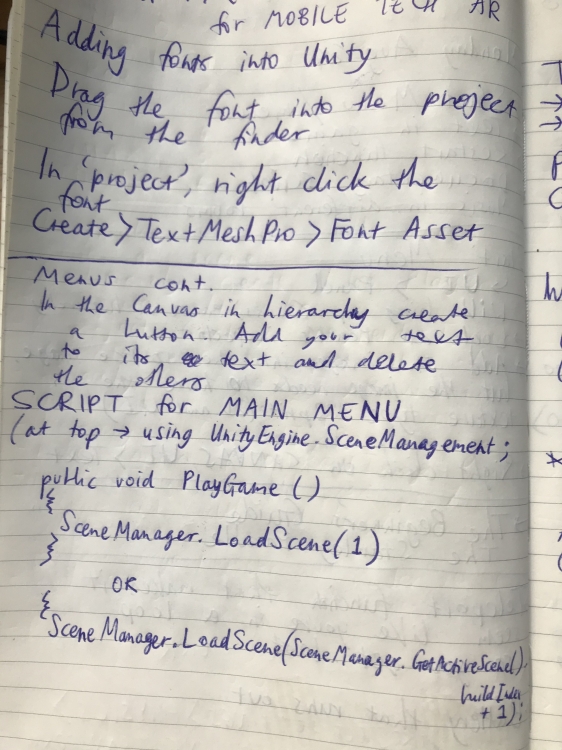 for MOBILE TECH AR
Adding fonts into Unity
Drag the font into the project
from the finder
In 'project', right click the
font
Create > TextMeshPro > Font Asset
Menus cont.
In the Canvas in hierarchy create
a button. Add your text
to its text and delete
the others
SCRIPT for MAIN MENU
(at top → using UnityEngine.SceneManagement;
public void PlayGame ()
{
SceneManager.LoadScene(1)
}
OR
{
SceneManager.LoadScene(SceneManager.GetActiveScene().
buildIndex
+ 1);